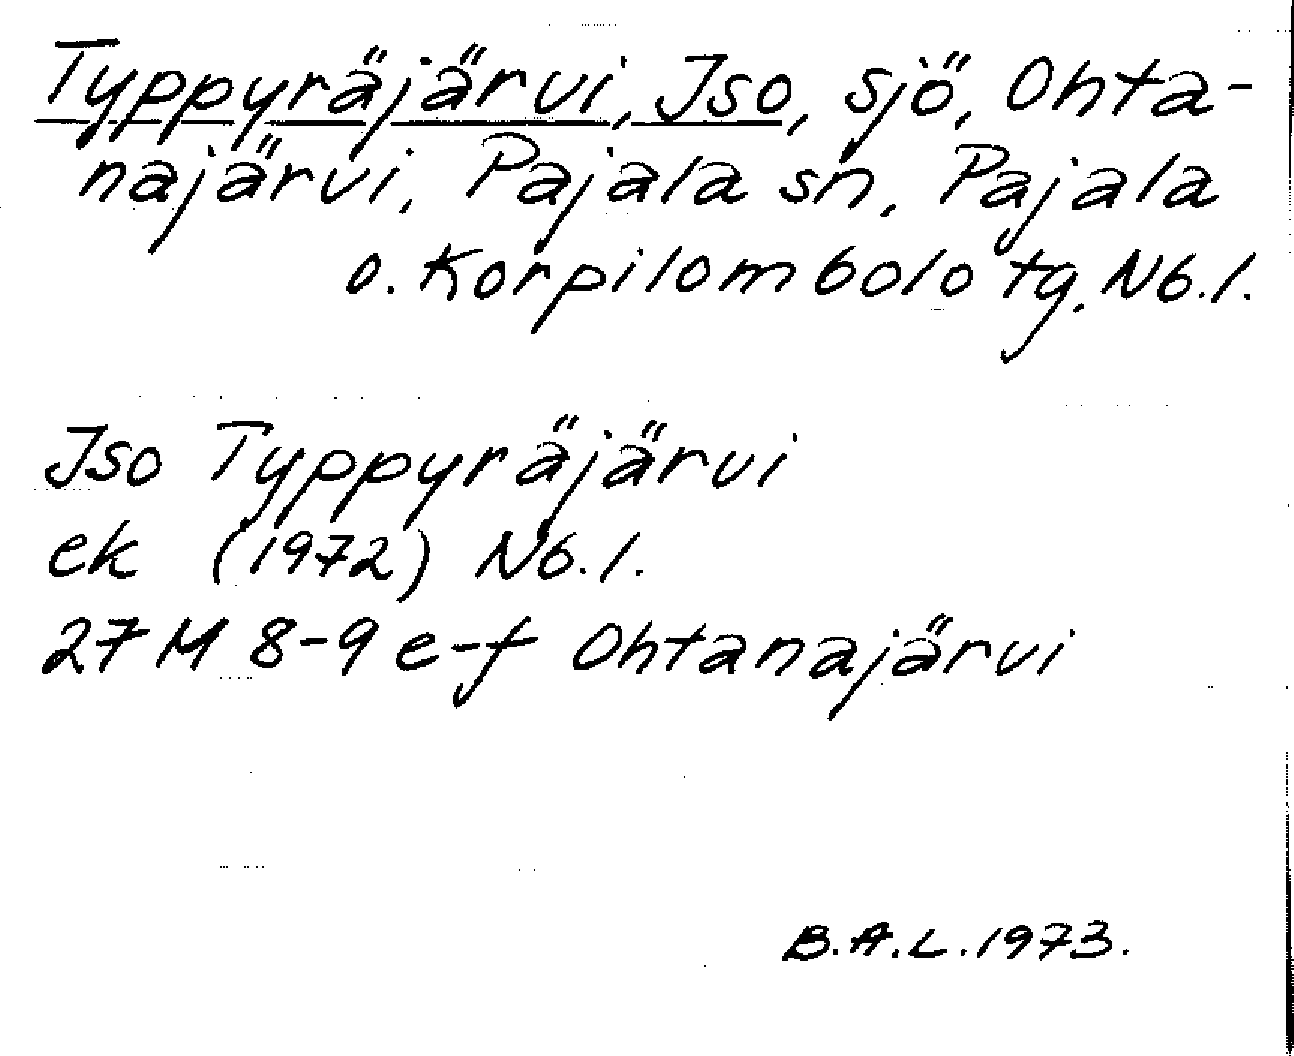 Typpyräjärvi, Iso, sjö, Ohta-
najärvi, Pajala sn, Pajala
o. Korpilombolo tg. Nb.l.
Iso Typpyräjärvi
ek (1972) Nb.l.
27 M 8-9 e-f Ohtanajärvi
B.A.L. 1973.